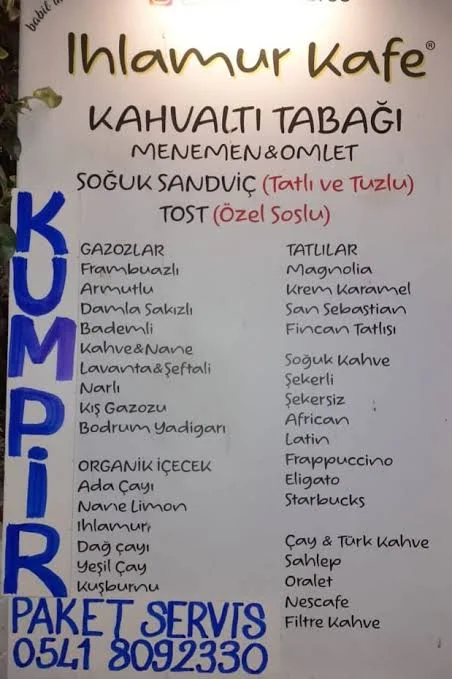 Ihlamur Kafe®
KAHVALTI TABAĞI
MENEMEN&OMLET
SOĞUK SANDVİÇ (Tatlı ve Tuzlu)
TOST (Özel Soslu)
KUMPİR
GAZOZLAR
Frambuazlı
Armutlu
Damla Sakızlı
Bademli
Kahve&Nane
Lavanta&Şeftali
Narlı
Kış Gazozu
Bodrum Yadigarı
ORGANİK İÇECEK
Ada Çayı
Nane Limon
Ihlamur
Dağ çayı
Yeşil Çay
Kuşburnu
TATLILAR
Magnolia
Krem Karamel
San Sebastian
Fincan Tatlısı
Soğuk Kahve
Şekerli
Şekersiz
African
Latin
Frappuccino
Eligato
Starbucks
Çay & Türk Kahve
Sahlep
Oralet
Nescafe
Filtre Kahve
PAKET SERVİS
0541 8092330